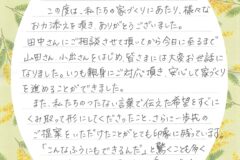 この度は、私たちの家づくりにあたり、様々な
お力添えを頂き、ありがとうございました。
田中さんにご相談させて頂いてから今日に至るまで
山田さん、小出さんをはじめ、皆さまには大変お世話に
なりました。いつも親身にご対応頂き、安心して家づくり
を進めることができました。
また、私たちのつたない言葉で伝えた希望をすぐに
くみ取って形にしてくださったこと、さらに一歩先の
ご提案をいただけたことがとても印象に残っています。
「こんなふうにもできるんだ」と驚くことも多く